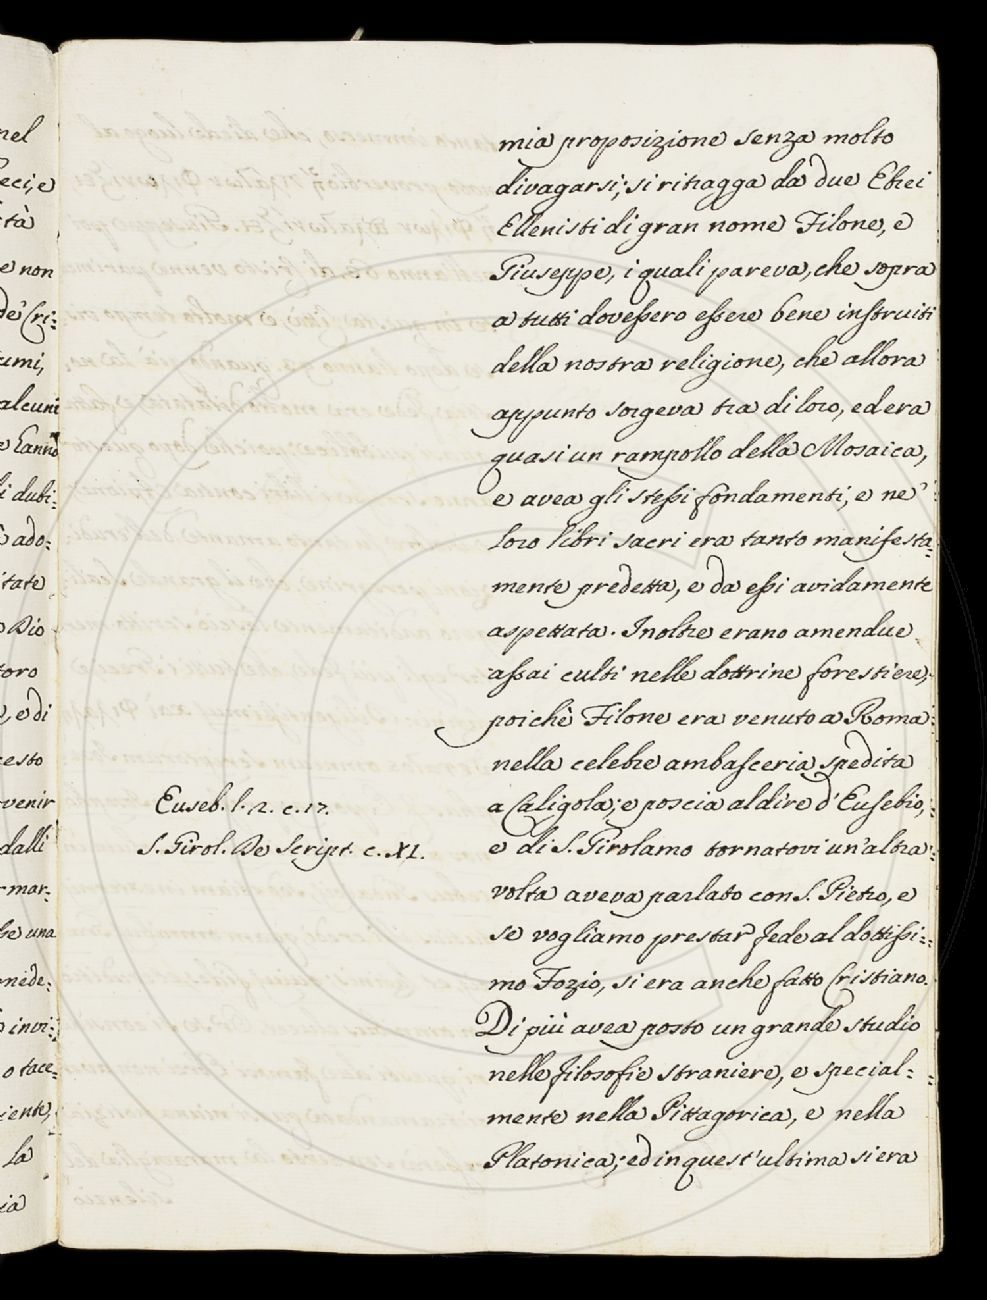 mia proposizione senza molto
divagarsi; si ritragga da due Ebrei
Ellenisti di gran nome Filone, e
Giuseppe, i quali pareva, che sopra
a tutti dovessero essere bene instruiti
della nostra religione, che allora
appunto sorgeva tra di loro, ed era
quasi un rampollo della Mosaica,
e avea gli stessi fondamenti, e ne'
loro libri sacri era tanto manifesta=
mente predetta, e da essi avidamente
aspettata. Inoltre erano amendue
assai culti nelle dottrine forestiere,
poichè Filone era venuto a Roma
nella celebre ambasceria spedita
a Caligola; e poscia al dire d'Eusebio,
e di S. Girolamo tornatovi un'altra
volta aveva parlato con S. Pietro, e
se vogliamo prestar fede al dottissi=
mo Fozio, si era anche fatto Cristiano.
Di più avea posto un grande studio
nelle filosofie straniere, e special=
mente nella Pittagorica, e nella
Platonica; ed in quest'ultima si era
Euseb. l. 2. c. 17.
S. Girol. De Script. c. XI.
nel
eci, e
tà
e non
de' Cri=
umi,
alcuni
e hanno
i dubi=
ado=
itate
Dio
toro
, e di
esto
venir
dalli
mar=
be una
mede=
invi=
o tace=
iente,
la
ia